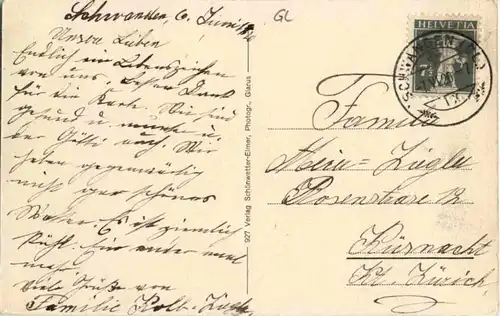 GL
Schwanden, 6. Juni
Unsre Lieben
Endlich ein Lebenszeichen
von uns. Besten Dank
für die Karte. Wir sind
gesund u. munter u.
der Götti auch. Wir
haben gegenwärtig
nicht gar schönes
Wetter. Es ist ziemlich
kühl. Ein ander mal
mehr.
Viele Grüße von
Familie Kolb-
927 Verlag Schönwetter-Elmer, Photogr., Glarus
HELVETIA
SCHWANDEN (GL)
Familie
Rosenstrasse 12
Küsnacht
Kt. Zürich